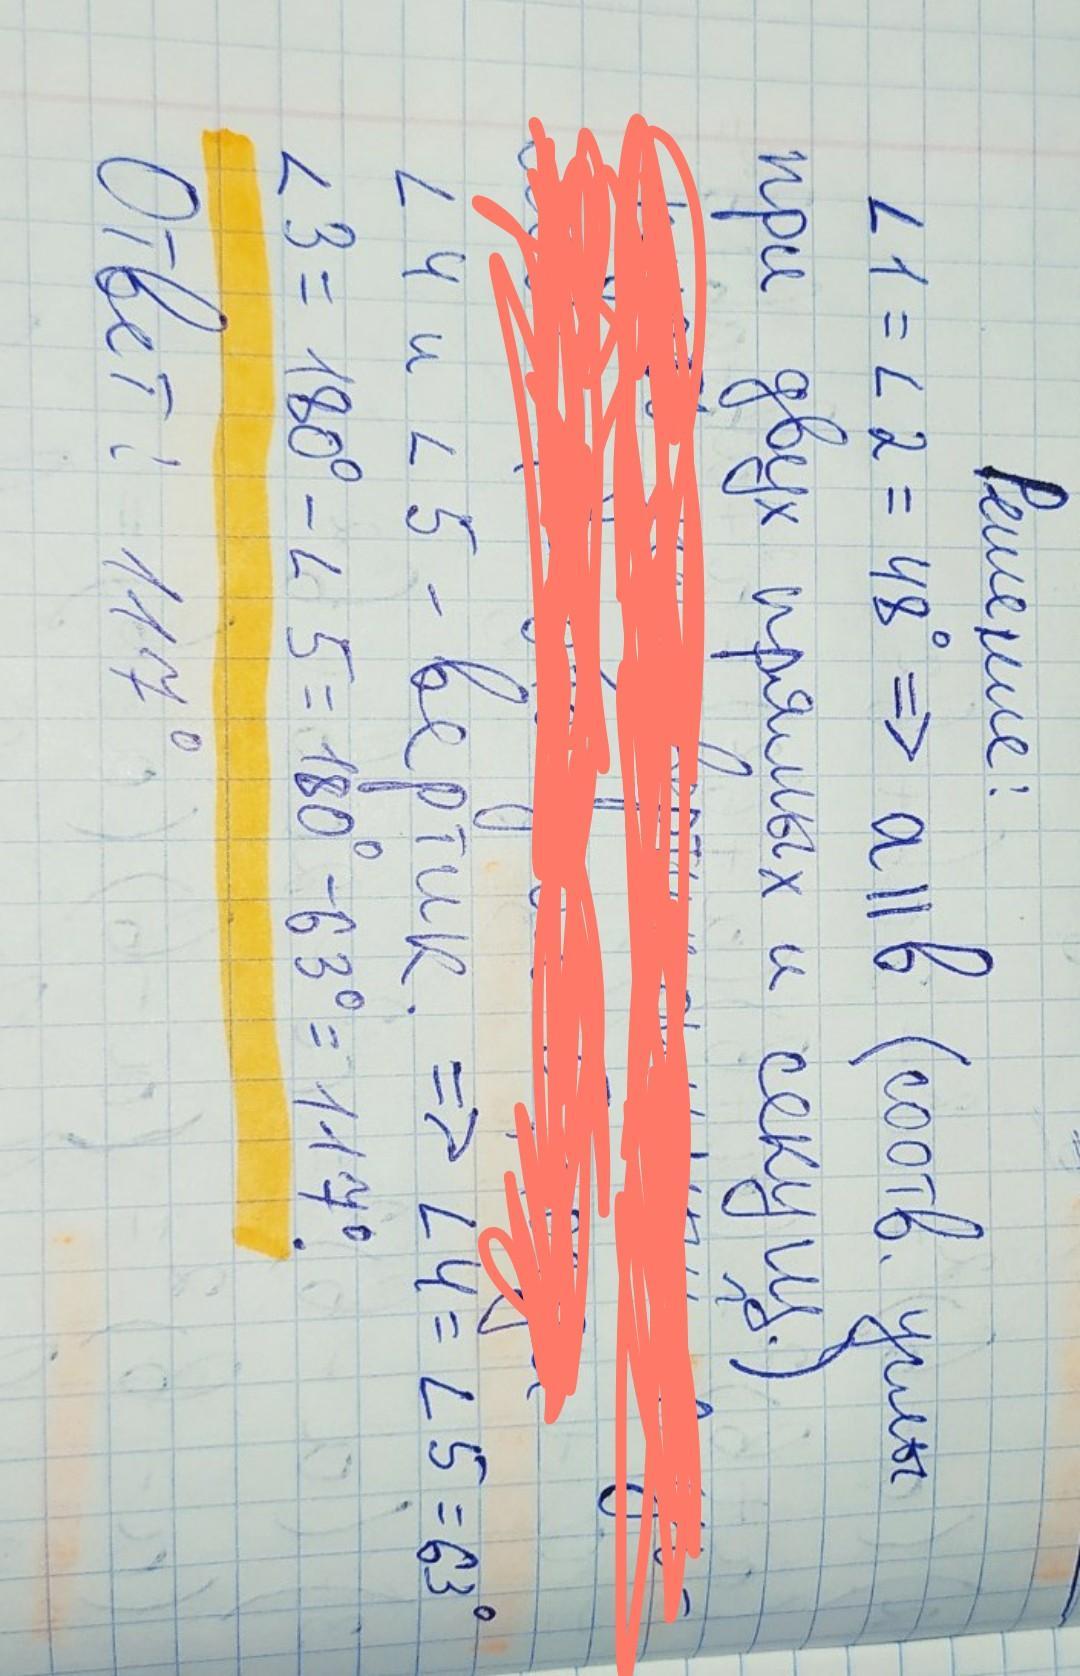 Решение:
∠1 = ∠2 = 48° => a || b (соотв. углы
при двух прямых и секущ.)
∠4 и ∠5 - вертик. => ∠4 = ∠5 = 63°
∠3 = 180° - ∠5 = 180° - 63° = 117°.
Ответ: 117°